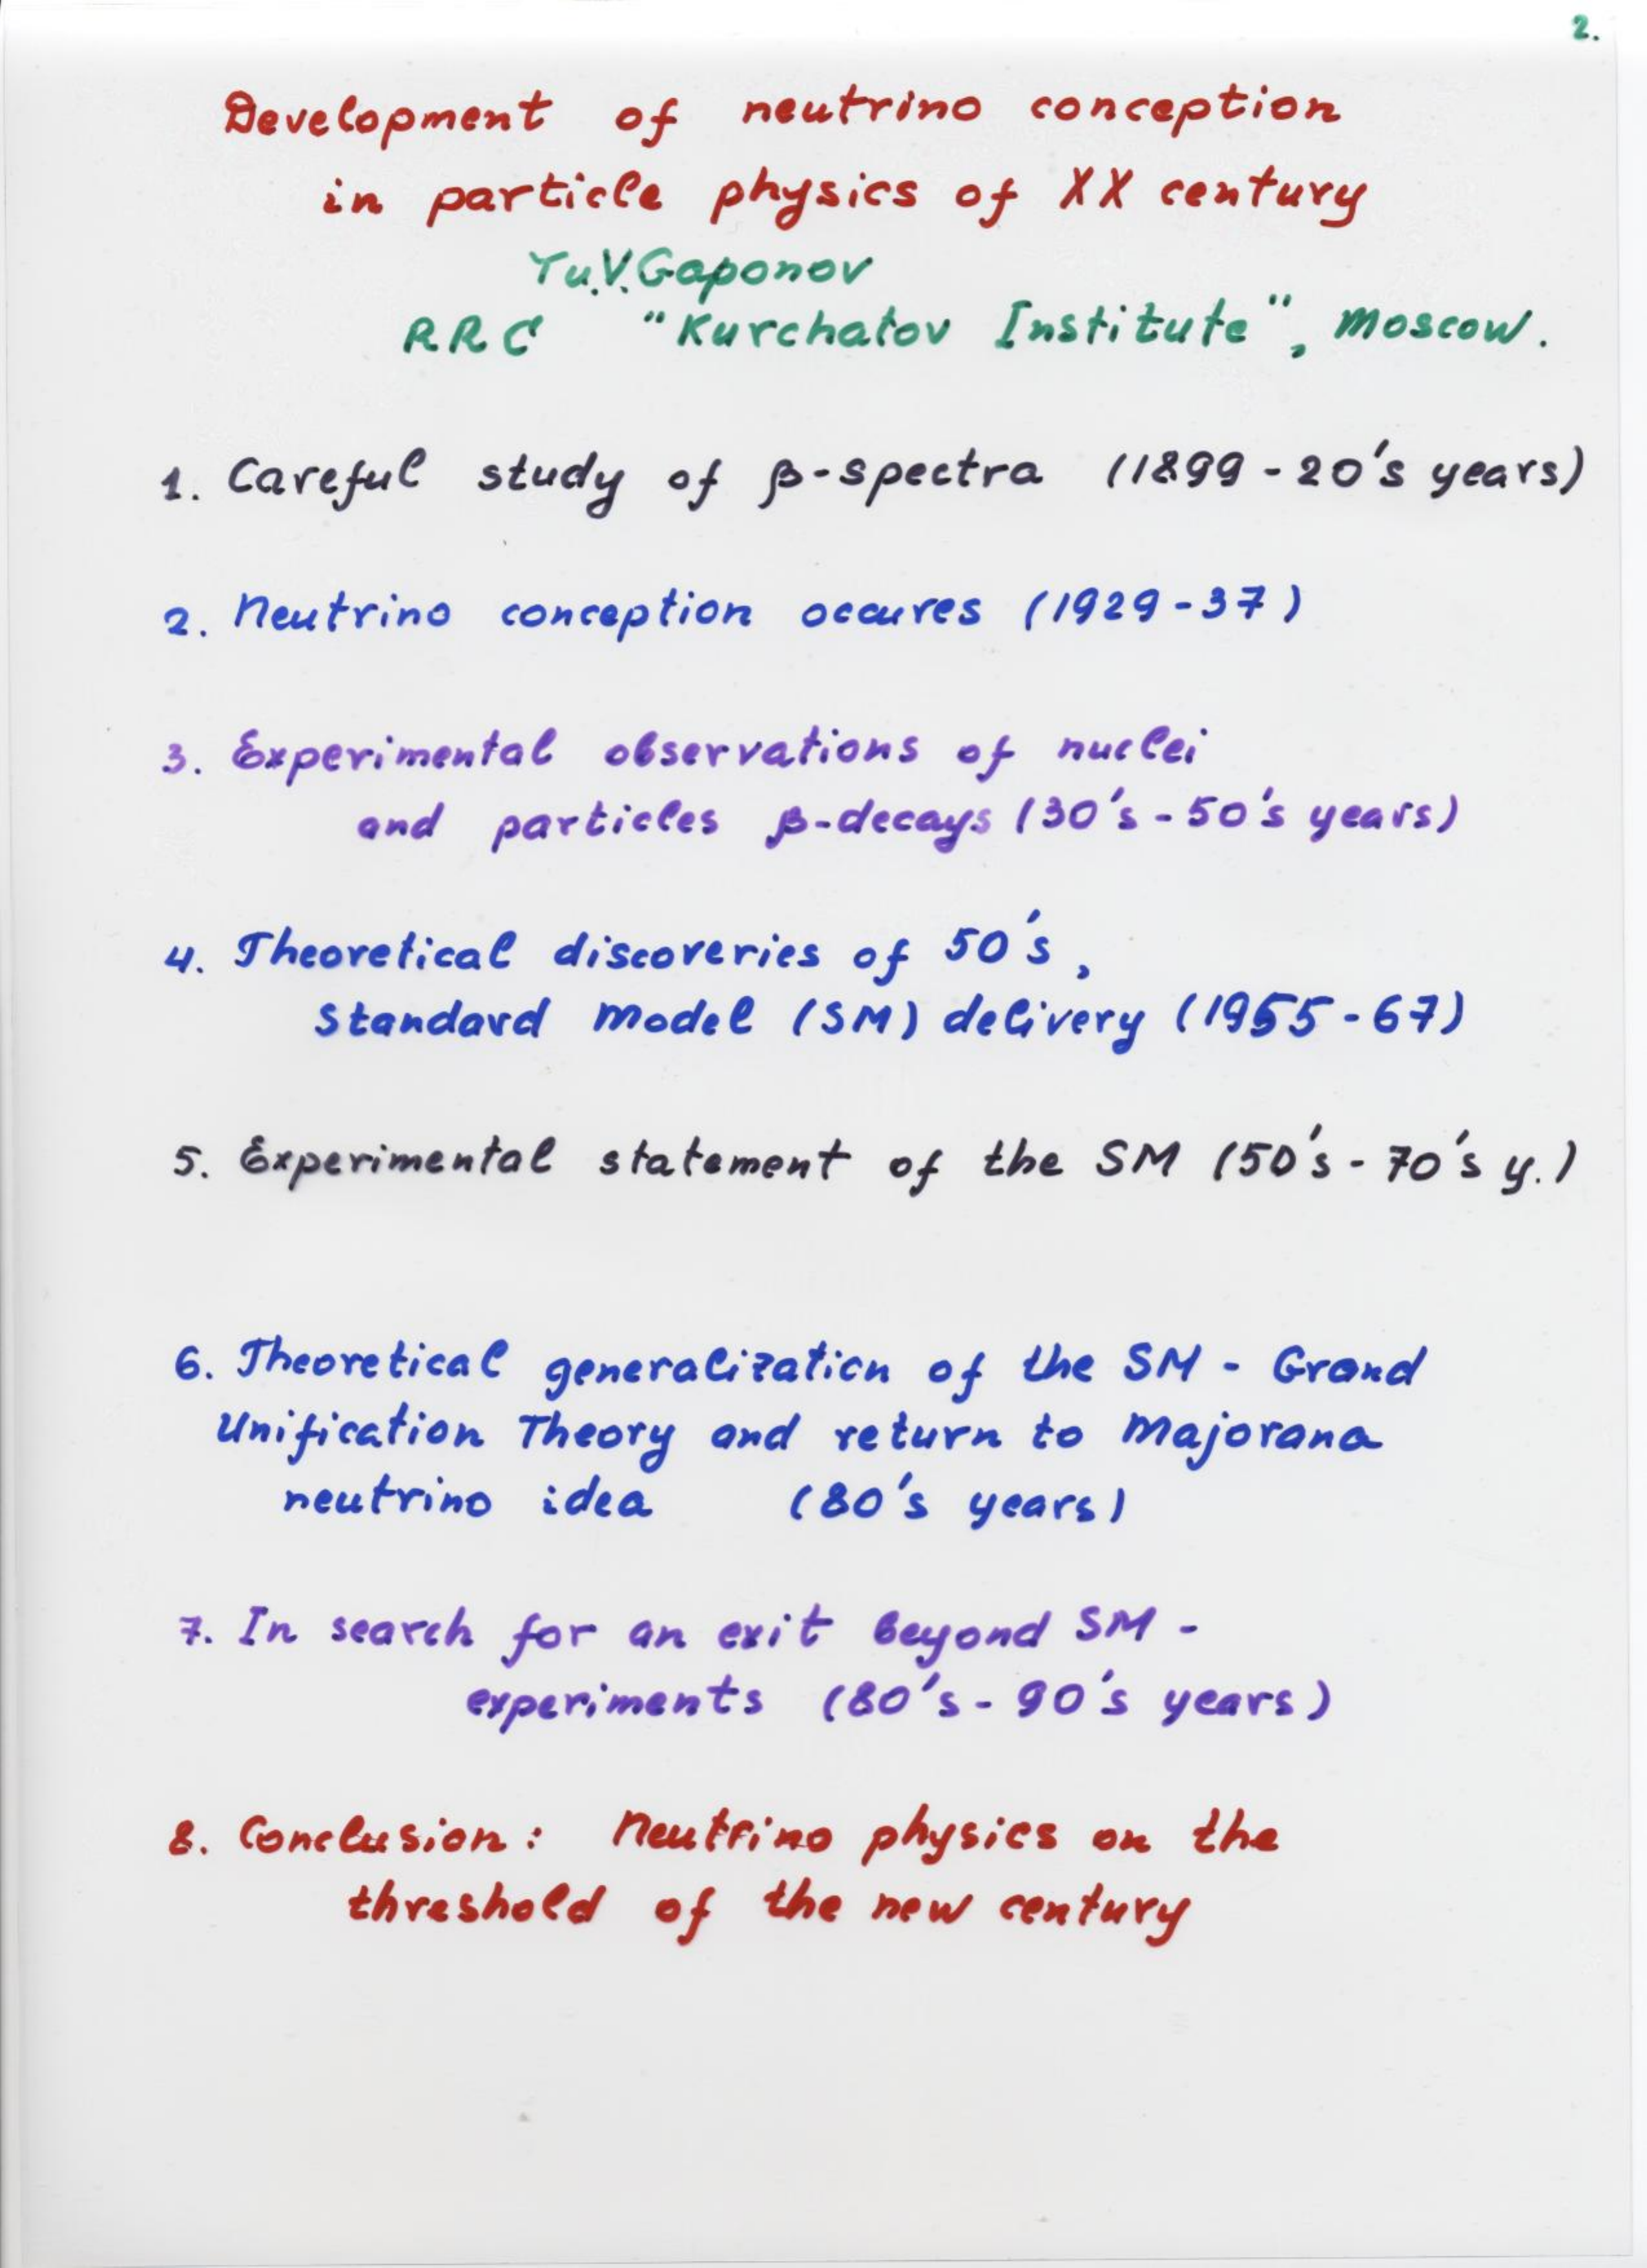 2.
Development of neutrino conception
in particle physics of XX century
Yu.V.Gaponov
RRC "Kurchatov Institute", Moscow.
1. Careful study of β-spectra (1899-20's years)
2. Neutrino conception occures (1929-37)
3. Experimental observations of nuclei
and particles β-decays (30's-50's years)
4. Theoretical discoveries of 50's,
Standard Model (SM) delivery (1955-67)
5. Experimental statement of the SM (50's-70's y.)
6. Theoretical generalization of the SM - Grand
Unification Theory and return to Majorana
neutrino idea (80's years)
7. In search for an exit beyond SM -
experiments (80's-90's years)
8. Conclusion: Neutrino physics on the
threshold of the new century